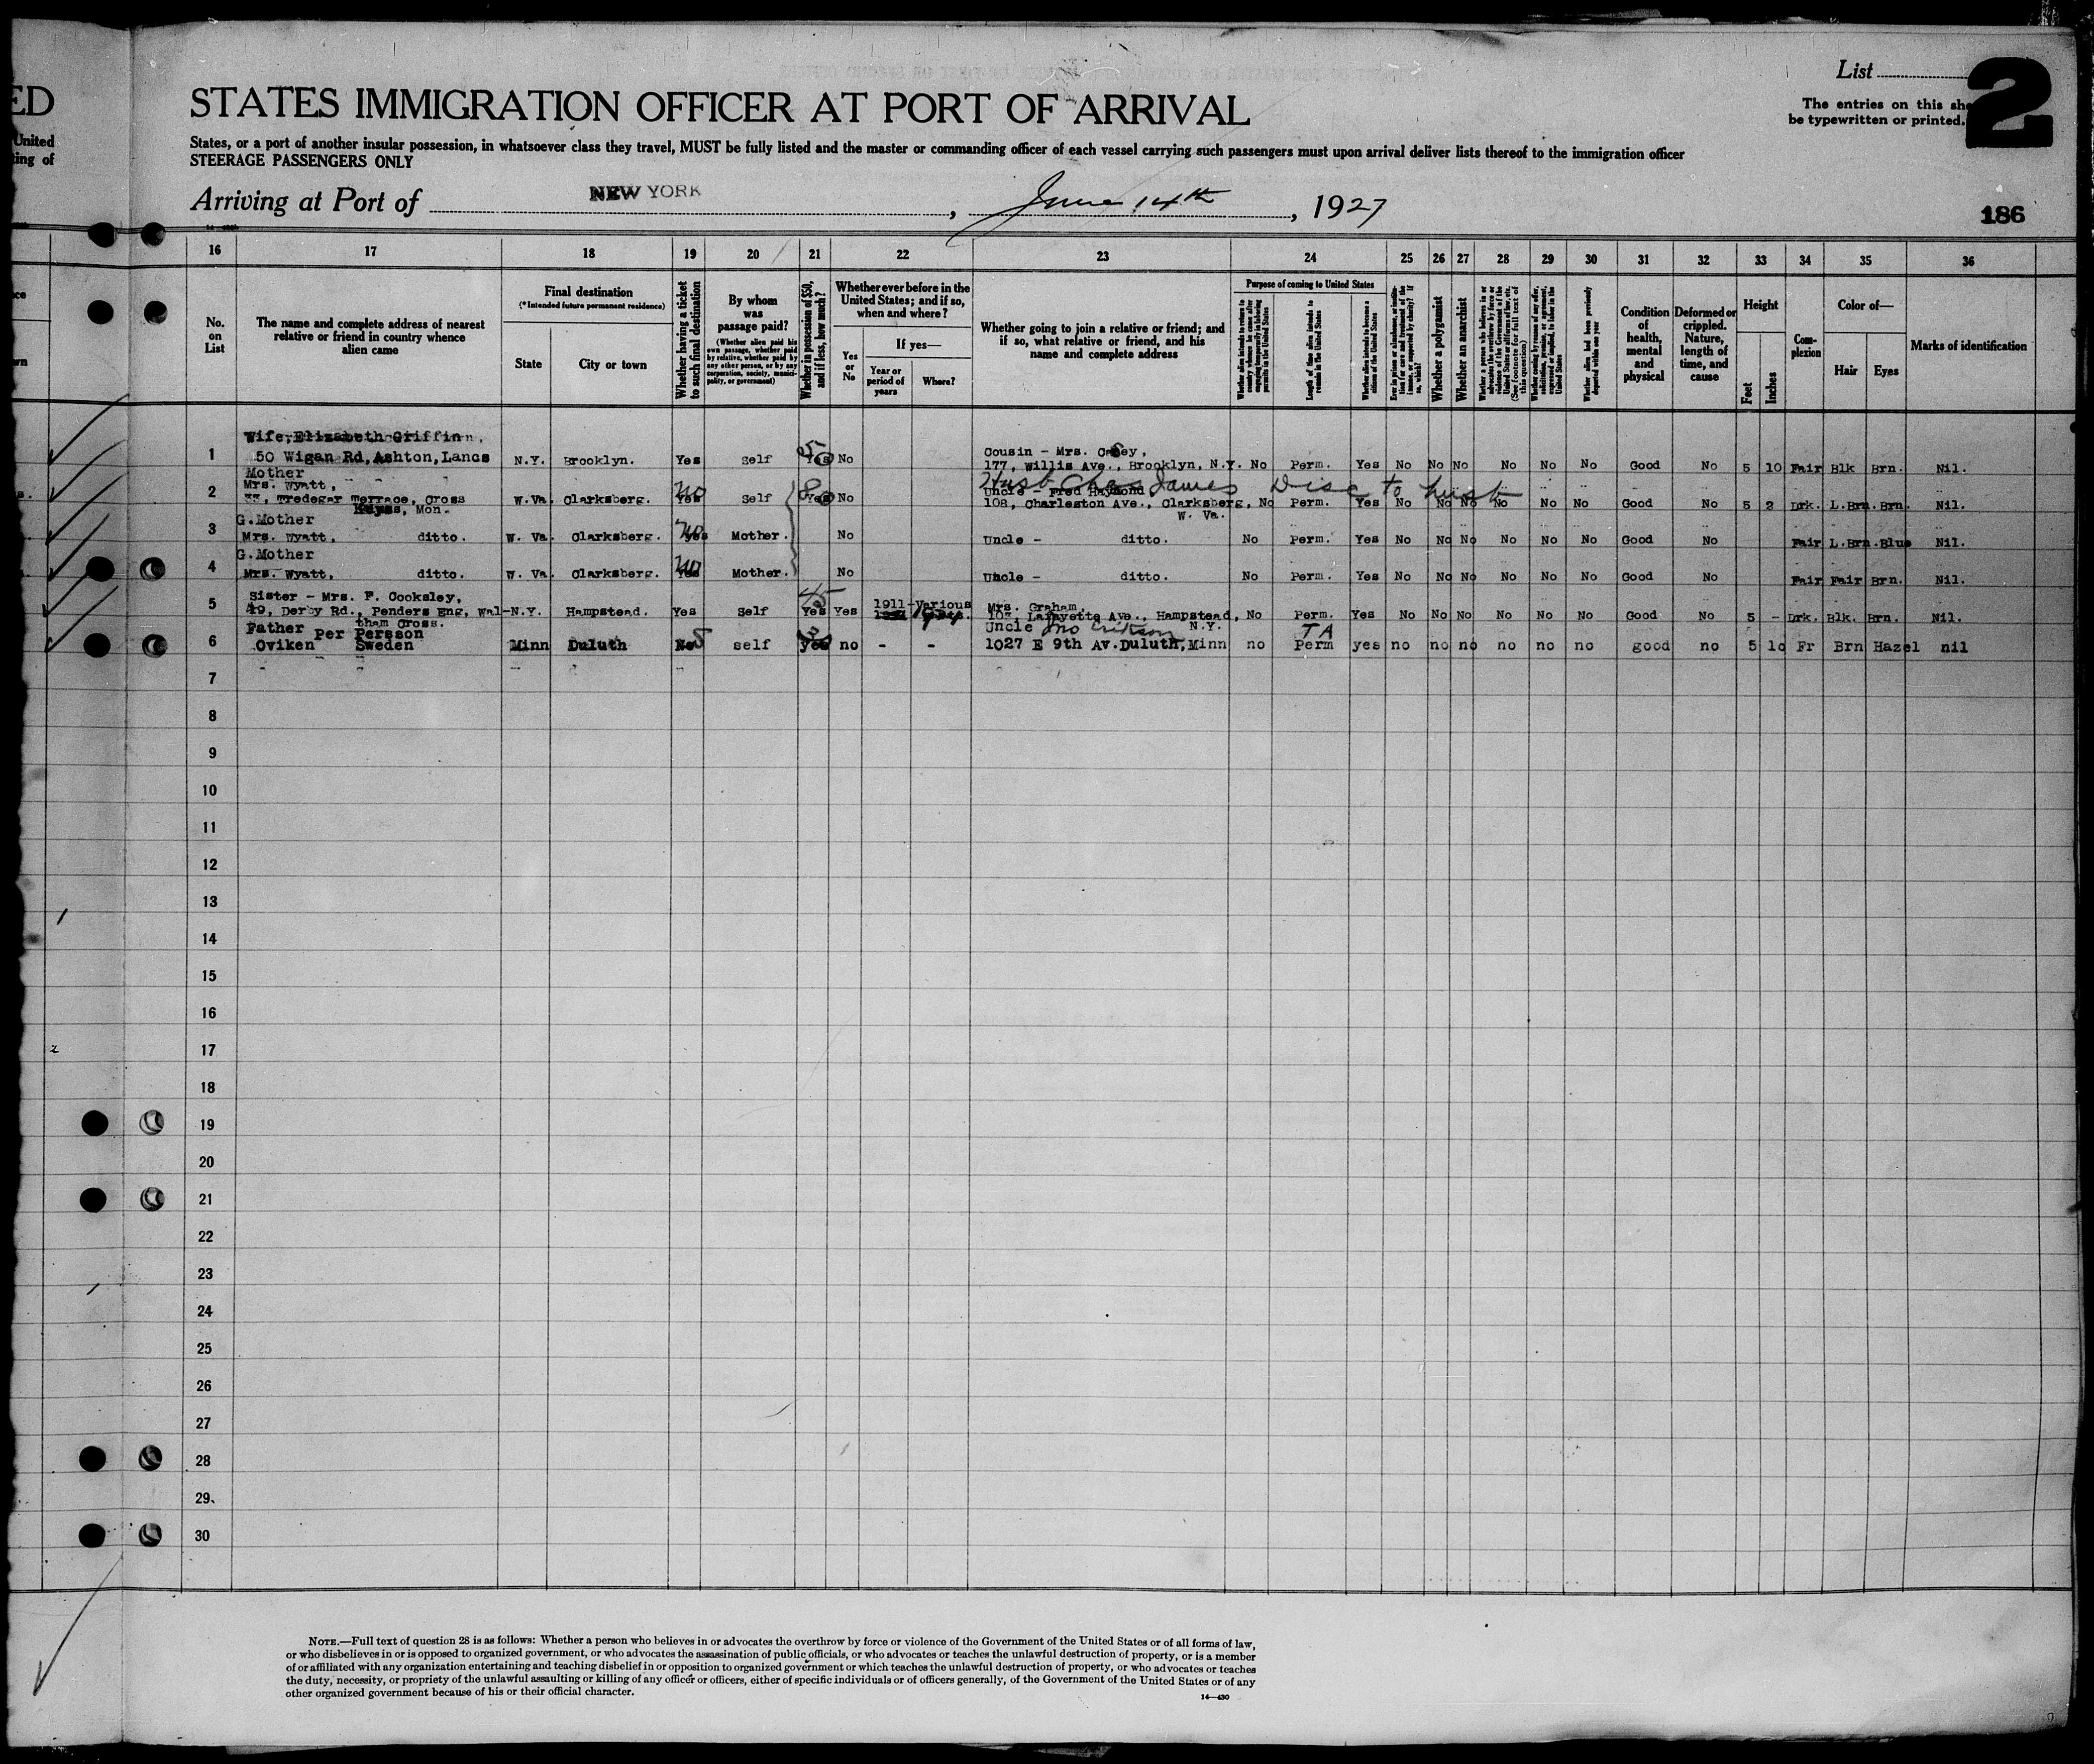 ED
United
ing of
List
2
The entries on this she
be typewritten or printed.
STATES IMMIGRATION OFFICER AT PORT OF ARRIVAL
States, or a port of another insular possession, in whatsoever class they travel, MUST be fully listed and the master or commanding officer of each vessel carrying such passengers must upon arrival deliver lists thereof to the immigration officer
STEERAGE PASSENGERS ONLY
Arriving at Port of NEW YORK, June 14th, 1927
186
16 17 18 19 20 21 22 23 24 25 26 27 28 29 30 31 32 33 34 35 36
No. on List
The name and complete address of nearest relative or friend in country whence alien came
Final destination
(*Intended future permanent residence)
State
City or town
Whether having a ticket to such final destination
By whom was passage paid?
(Whether alien paid his own passage, whether paid by relative, whether paid by any other person, or by any corporation, society, municipality, or government)
Whether in possession of $50, and if less, how much?
Whether ever before in the United States; and if so, when and where?
Yes or No
If yes—
Year or period of years
Where?
Whether going to join a relative or friend; and if so, what relative or friend, and his name and complete address
Purpose of coming to United States
Length of time alien intends to remain in the United States
Whether alien intends to become a citizen of the United States
Whether a polygamist
Whether an anarchist
Whether alien had been previously deported within one year
Condition of health, mental and physical
Deformed or crippled. Nature, length of time, and cause
Height
Feet
Inches
Complexion
Color of—
Hair
Eyes
Marks of identification
Wife, Elizabeth Griffin,
1 50 Wigan Rd, Ashton, Lancs N.Y. Brooklyn. Yes Self Yes 50 No
Cousin - Mrs. Casey,
177, Willis Ave., Brooklyn, N.Y. No Perm. Yes No No No No No No Good No 5 10 Fair Blk Brn. Nil.
Mother
Mrs. Wyatt,
2 33, Tredegar Terrace, Cross Keys, Mon. W.Va. Clarksberg. Yes No Self Yes No
Husb Chas James Disc to husb
Uncle - Fred Haymond
108, Charleston Ave., Clarksberg, W. Va. No Perm. Yes No No No No No No Good No 5 2 Drk. L.Brn. Brn. Nil.
G.Mother
3 Mrs. Wyatt, ditto. W. Va. Clarksberg. Yes No Mother. No Uncle - ditto. No Perm. Yes No No No No No No Good No Fair L.Brn. Blue Nil.
G.Mother
4 Mrs. Wyatt, ditto. W. Va. Clarksberg. Yes No Mother. No Uncle - ditto. No Perm. Yes No No No No No No Good No Fair Fair Brn. Nil.
Sister - Mrs. F. Cooksley,
5 49, Derby Rd., Penders Eng, Waltham Cross. N.Y. Hampstead. Yes Self Yes 45 Yes 1911- Various
Mrs. Graham,
103 Lafayette Ave., Hampstead, N.Y. No Perm. Yes No No No No No No Good No 5 - Drk. Blk. Brn. Nil.
Father Per Persson
6 Oviken Sweden Minn Duluth self yes no - -
Uncle Jno Erikson
1027 E 9th Av. Duluth, Minn no Perm TA yes no no no no no no good no 5 10 Fr Brn Hazel nil
7
8
9
10
11
12
13
14
15
16
17
18
19
20
21
22
23
24
25
26
27
28
29
30
NOTE.—Full text of question 28 is as follows: Whether a person who believes in or advocates the overthrow by force or violence of the Government of the United States or of all forms of law,
or who disbelieves in or is opposed to organized government, or who advocates the assassination of public officials, or who advocates or teaches the unlawful destruction of property, or is a member
of or affiliated with any organization entertaining and teaching disbelief in or opposition to organized government or which teaches the unlawful destruction of property, or who advocates or teaches
the duty, necessity, or propriety of the unlawful assaulting or killing of any officer or officers, either of specific individuals or of officers generally, of the Government of the United States or of any
other organized government because of his or their official character.
14—430